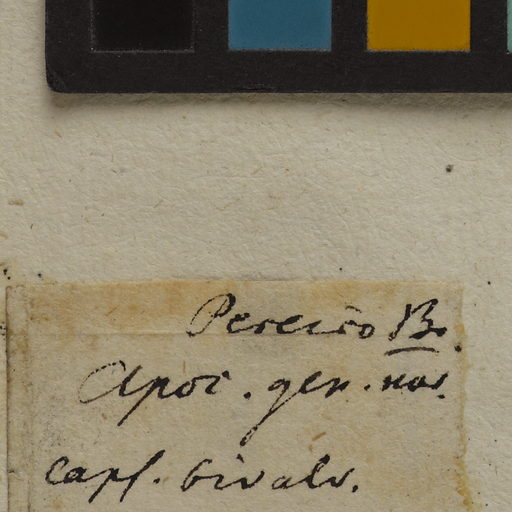 Pereiro B.
Apoc. gen. nov.
caps. bivalv.